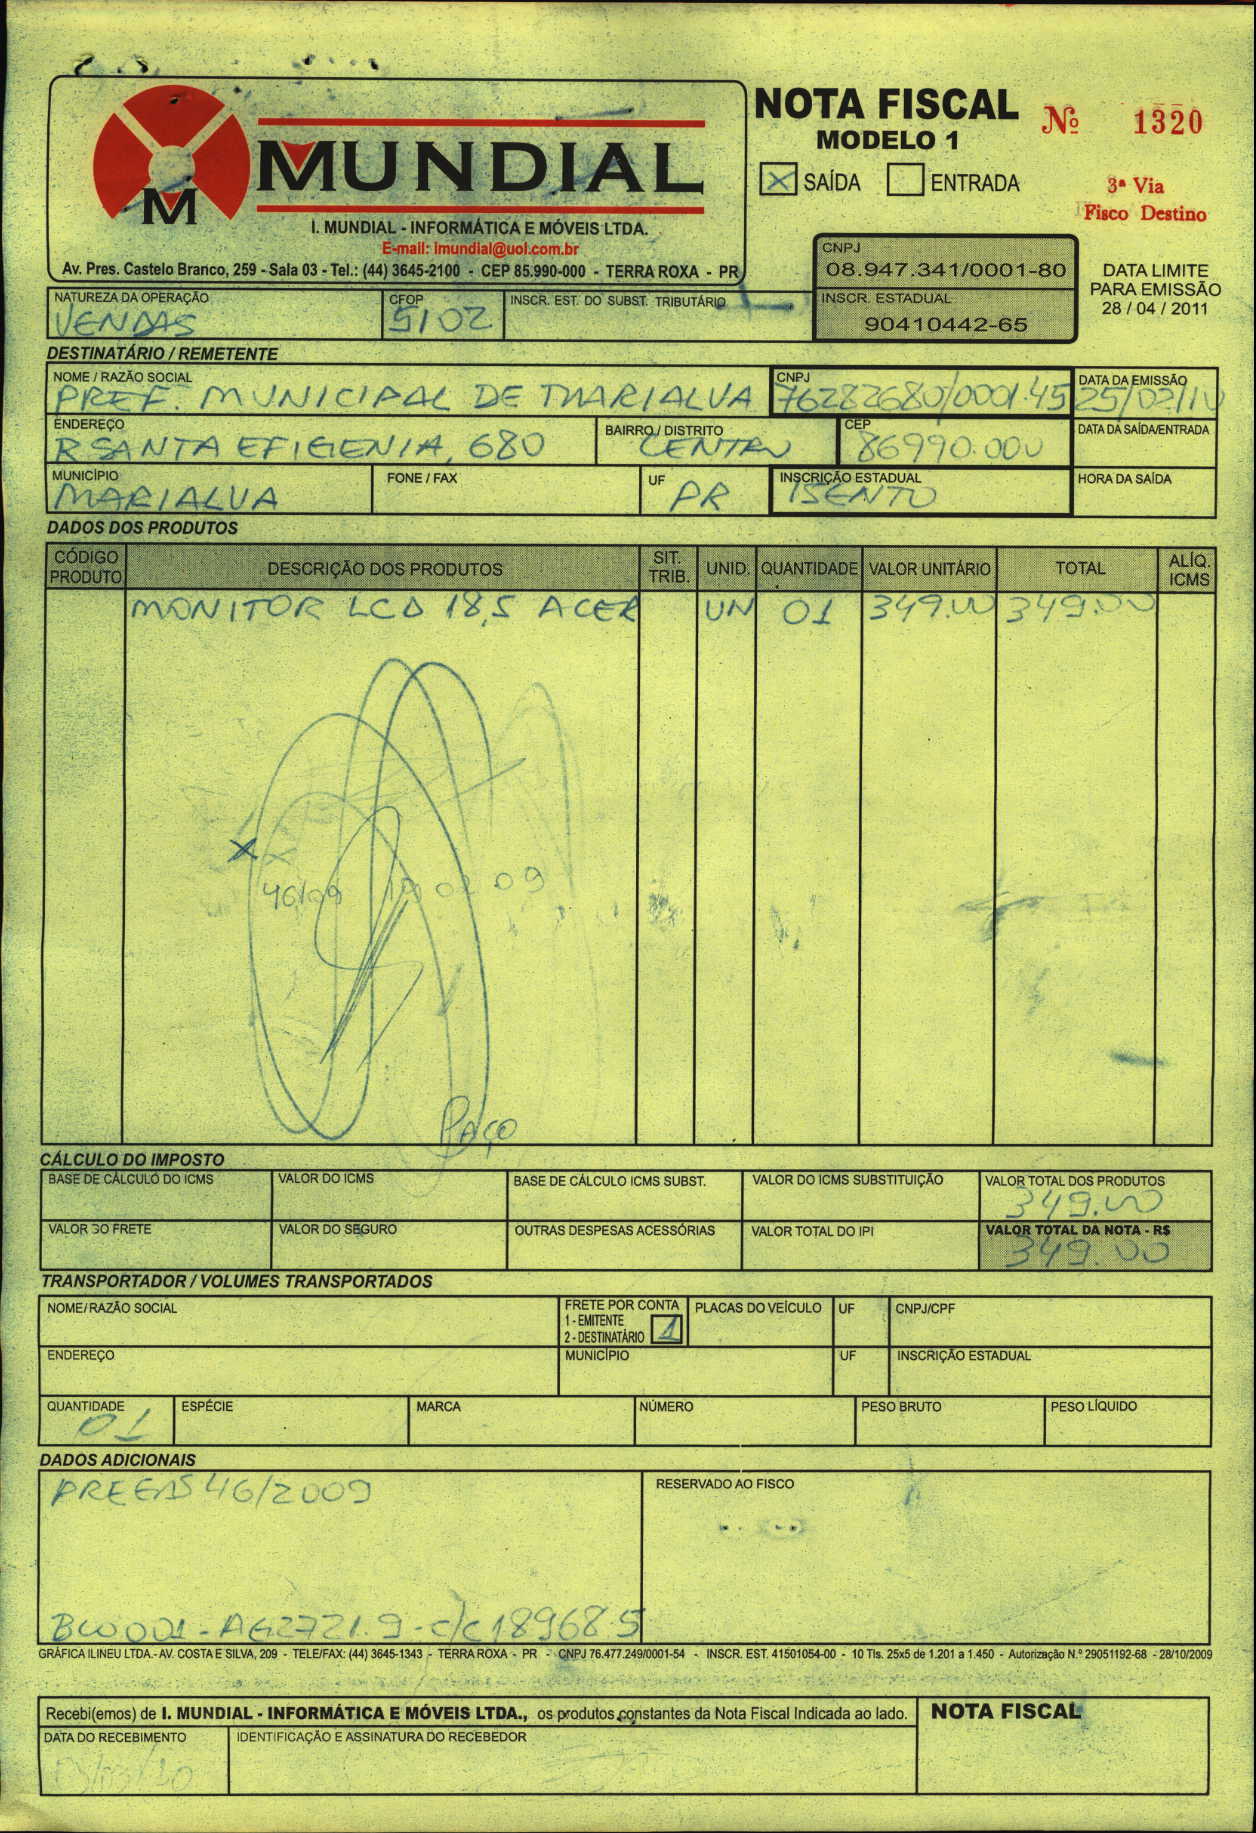 MUNDIAL
M
I. MUNDIAL - INFORMÁTICA E MÓVEIS LTDA.
E-mail: imundial@uol.com.br
Av. Pres. Castelo Branco, 259 - Sala 03 - Tel.: (44) 3645-2100 - CEP 85.990-000 - TERRA ROXA - PR
NOTA FISCAL
MODELO 1
X SAÍDA ENTRADA
Nº 1320
3ª Via
Fisco Destino
CNPJ
08.947.341/0001-80
INSCR. ESTADUAL
90410442-65
DATA LIMITE
PARA EMISSÃO
28 / 04 / 2011
NATUREZA DA OPERAÇÃO CFOP INSCR. EST. DO SUBST. TRIBUTÁRIO
VENDAS 5102
DESTINATÁRIO / REMETENTE
NOME / RAZÃO SOCIAL CNPJ DATA DA EMISSÃO
PREF. MUNICIPAL DE MARIALVA 76282680/0001.45 25/02/10
ENDEREÇO BAIRRO / DISTRITO CEP DATA DA SAÍDA/ENTRADA
R SANTA EFIGENIA, 680 CENTRO 86990.000
MUNICÍPIO FONE / FAX UF INSCRIÇÃO ESTADUAL HORA DA SAÍDA
MARIALVA PR ISENTO
DADOS DOS PRODUTOS
CÓDIGO PRODUTO DESCRIÇÃO DOS PRODUTOS SIT. TRIB. UNID. QUANTIDADE VALOR UNITÁRIO TOTAL ALÍQ. ICMS
MONITOR LCD 18,5 ACER UN 01 349.00 349.00
X
46/09 02 09
CÁLCULO DO IMPOSTO
BASE DE CÁLCULO DO ICMS VALOR DO ICMS BASE DE CÁLCULO ICMS SUBST. VALOR DO ICMS SUBSTITUIÇÃO VALOR TOTAL DOS PRODUTOS
349.00
VALOR DO FRETE VALOR DO SEGURO OUTRAS DESPESAS ACESSÓRIAS VALOR TOTAL DO IPI VALOR TOTAL DA NOTA - R$
349.00
TRANSPORTADOR / VOLUMES TRANSPORTADOS
NOME/RAZÃO SOCIAL FRETE POR CONTA PLACAS DO VEÍCULO UF CNPJ/CPF
1 - EMITENTE
2 - DESTINATÁRIO 1
ENDEREÇO MUNICÍPIO UF INSCRIÇÃO ESTADUAL
QUANTIDADE ESPÉCIE MARCA NÚMERO PESO BRUTO PESO LÍQUIDO
01
DADOS ADICIONAIS
46/2009
RESERVADO AO FISCO
BCO 001 - AG 2721.9 - C/C 18968.5
GRÁFICA ILINEU LTDA.- AV. COSTA E SILVA, 209 - TELE/FAX: (44) 3645-1343 - TERRA ROXA - PR - CNPJ 76.477.249/0001-54 - INSCR. EST. 41501054-00 - 10 Tls. 25x5 de 1.201 a 1.450 - Autorização N.º 29051192-68 - 28/10/2009
Recebi(emos) de I. MUNDIAL - INFORMÁTICA E MÓVEIS LTDA., os produtos constantes da Nota Fiscal Indicada ao lado.
NOTA FISCAL
DATA DO RECEBIMENTO IDENTIFICAÇÃO E ASSINATURA DO RECEBEDOR